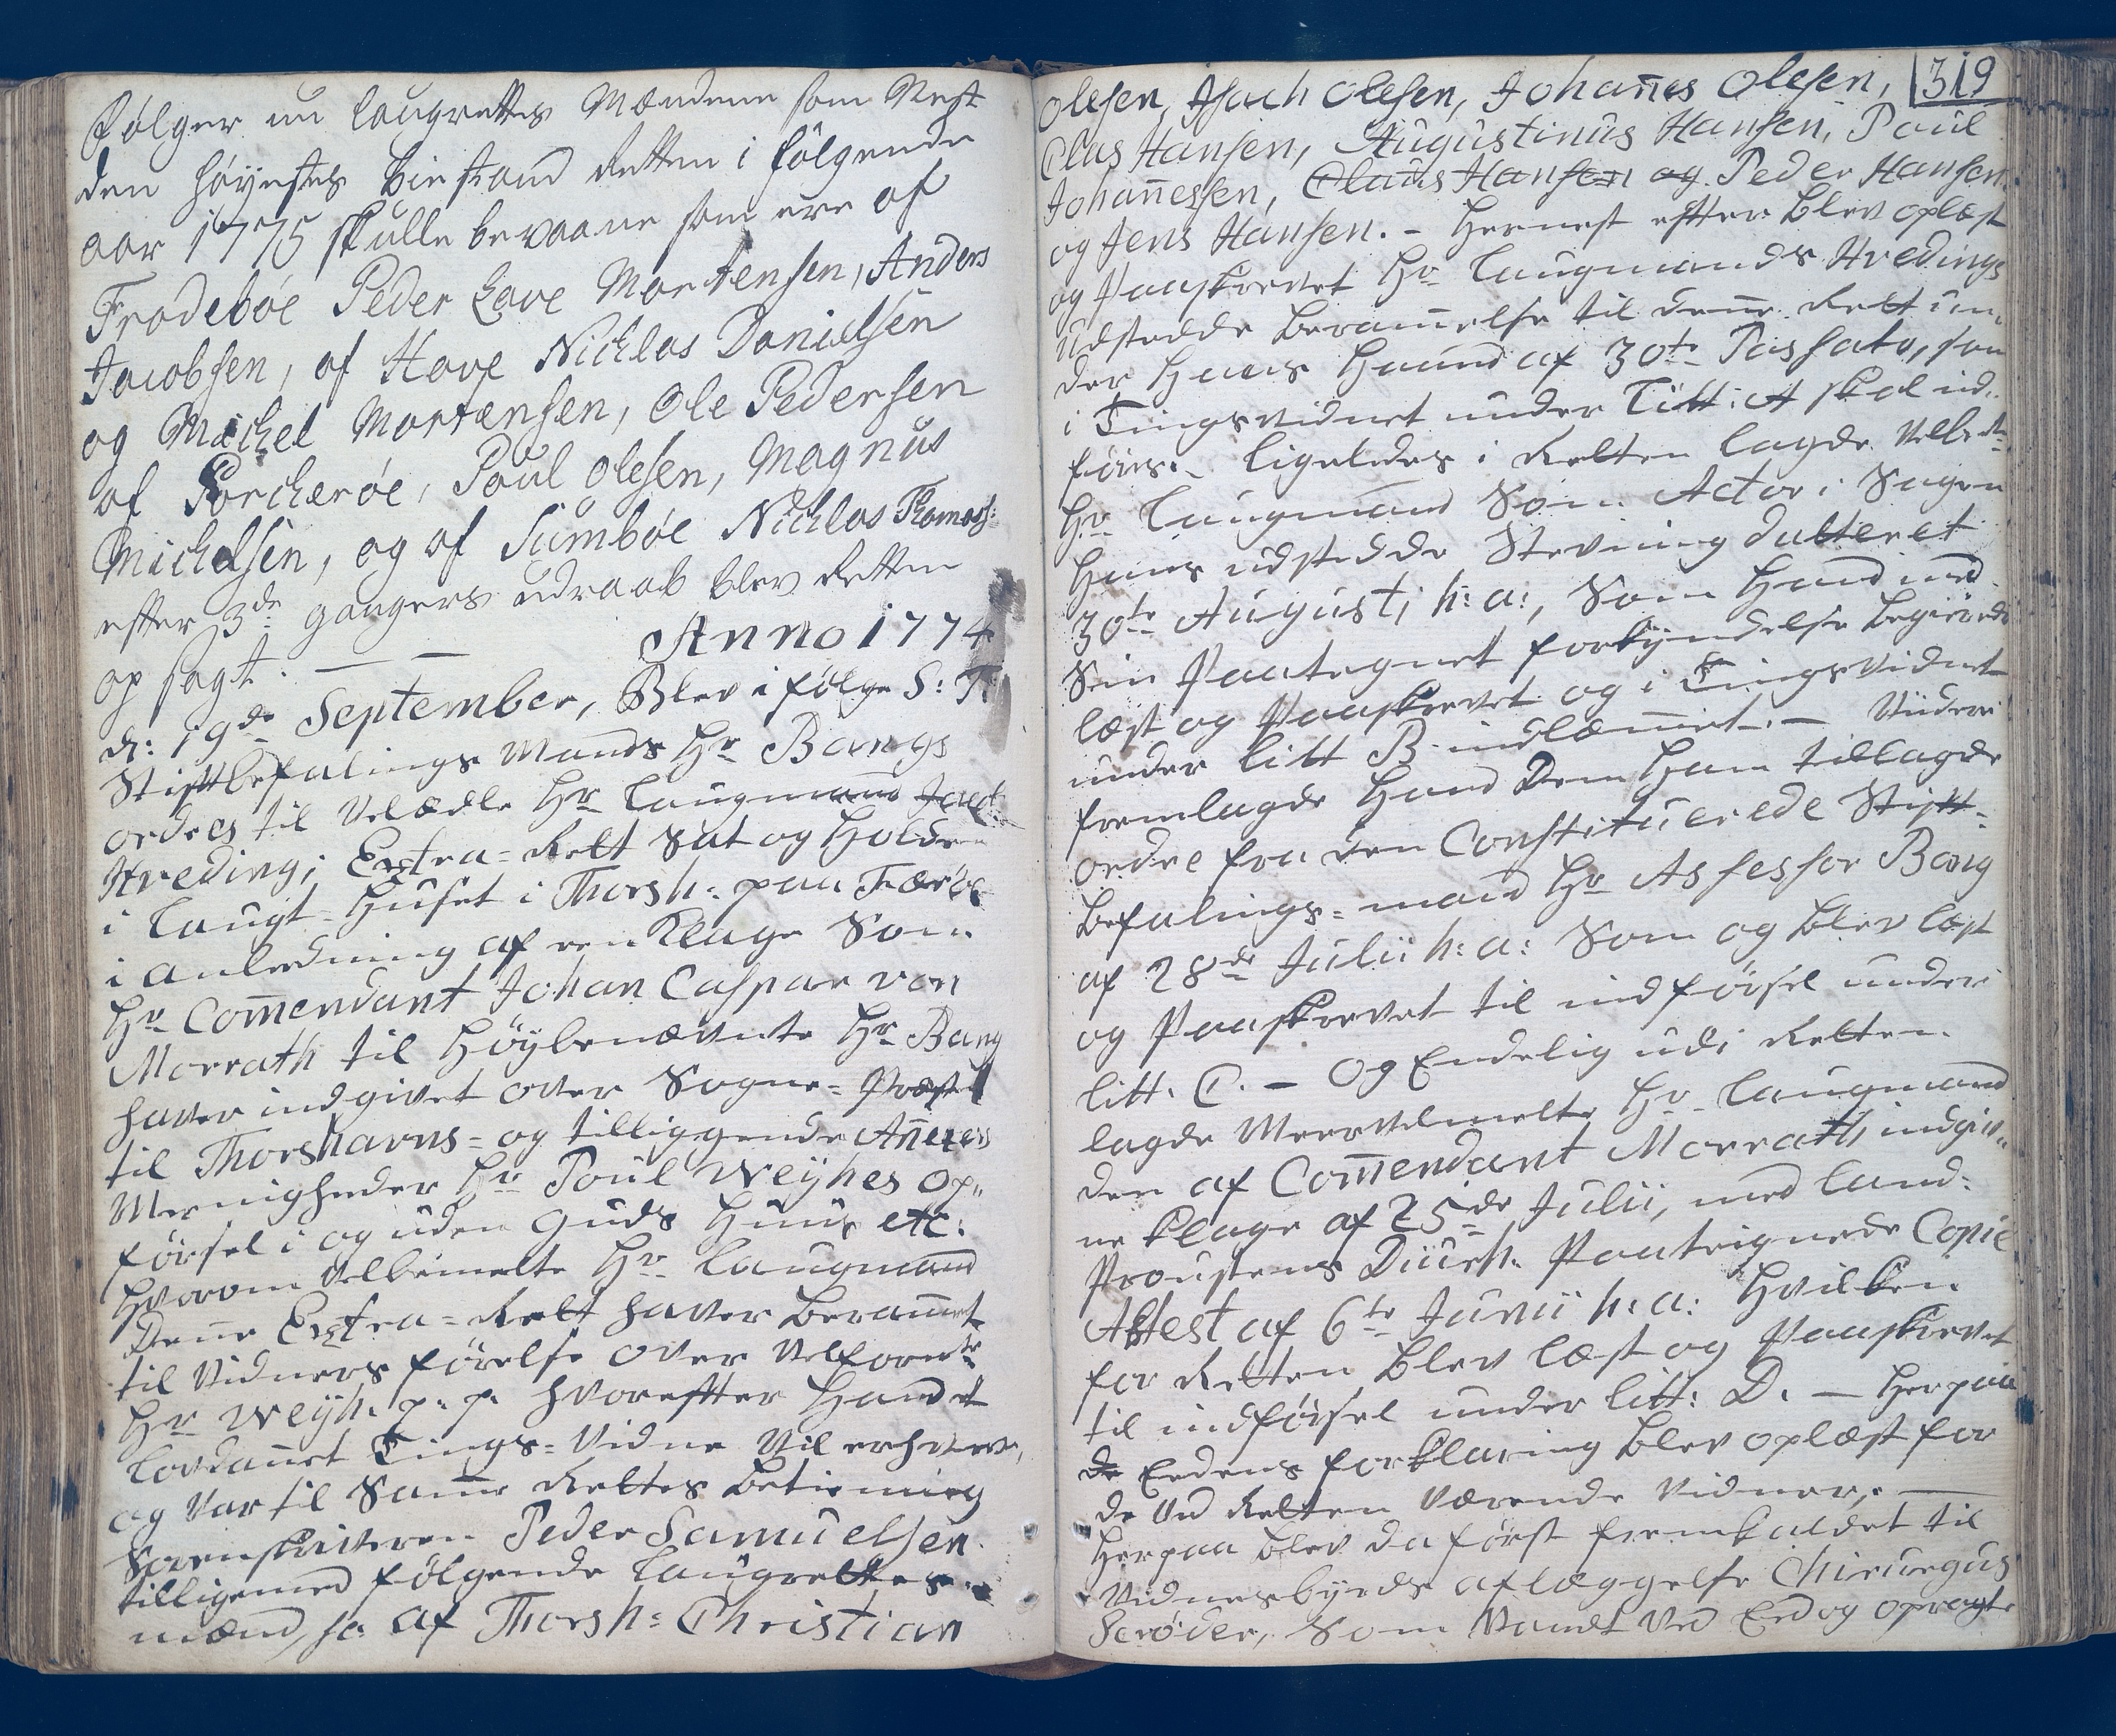 Følger nu Laugrettes Mændene som Nest
den høyestes Biestand Retten i følgende
aar 1775 skulle bevaane som ere af
Frodebøe Peder Love Mortensen, Anders
Jacobsen, af Hove Nicklas Danielsen
og Michel Mortensen, Ole Pedersen
af Porcherøe, Poul Olesen, Magnus
Michelsen, og af Sumbøe Nicklas Thomass:
efter 3de gangers udraab blev Retten
op sagt. — —
Anno 1774
d: 19de September, Blev i følge S: T:
Stiftbefalings Mands Hr Bangs
ordres til Velædle Hr Laugmand Jacob
Hveding; Extra=Rett Sat og Holden
i Laugt=Huset i Thorsh: paa Færøe
i anledning af een Klage Som
Hr Com̄endant Johan Casper von
Morrath til Høybenævnte Hr Bang
haver indgivet over Sogne=Præsten
til Thorshavns= og tilliggende An̄exes
Meenigheder Hr Poul Weyhes op„
førsel i og uden Guds Huus etc:
Hvorom Velbemelte Hr Laugmand
Den̄e Extra=Rett haver beram̄et
til Vidners førelse over Velforn̄te
Hr Weyh. p. p. hvorefter Hand et
Lovdan̄et Tings=Vidne Vil erhverve,
og Var til Sam̄e Rettes betiening
Sorenskriveren Peder Samuelsen
tilligemed følgende Laugrettes
mænd, so: af Thorsh: Christian
319
Olesen, Isach Olesen, Johan̄es Olesen,
Clas Hansen, Augustinus Hansen, Poul
Johan̄essen, Claus Hansen og Peder Hansen
og Jens Hansen. – Hernest efter blev oplæst
og Paaskrevet Hr Laugmands Hvedings
udstædde Beram̄else til den̄e Rett un„
der Hans Haand af 30te Passato, som
i Tingsvidnet under Litt: A skal ind„
føres. – Ligeledes i Retten lagde Velb:te
Hr Laugmand Som Actor i Sagen
Hans udstædde Stevning Datteret
30te Augusti h: a:, Som Hand med
Sin Paategnet forkyndelse begierede
læst og Paaskrevet og i Tingsvidnet
under Litt B indlæm̄et. – Viidere
fremlagde Hand Dem Ham tillagde
ordre fra den Constituerede Stift=
befalings=mand Hr Assessor Bang
af 28de Julii h: a: Som og blev læst
og Paaskrevet til indførsel under
Litt. C. – Og Endelig udi Retten
lagde Meervelmelte Hr Laugmand
den af Com̄endant Morrath indgiv„
ne klage af 25de Julii, med Land=
Proustens Diurh. Paateignede Copie
Attest af 6te Junii h: a: hvilken
for Retten blev læst og Paaskrevet
til indførsel under Litt: D. — Herpaa
de Eedens forklaring blev oplæst for
de Ved Retten Værende Vidner. —
Herpaa blev da først fremkaldet til
Vidnesbyrds aflæggelse Chirurgus
Scrøder, Som Vandt Ved Eed og opragte